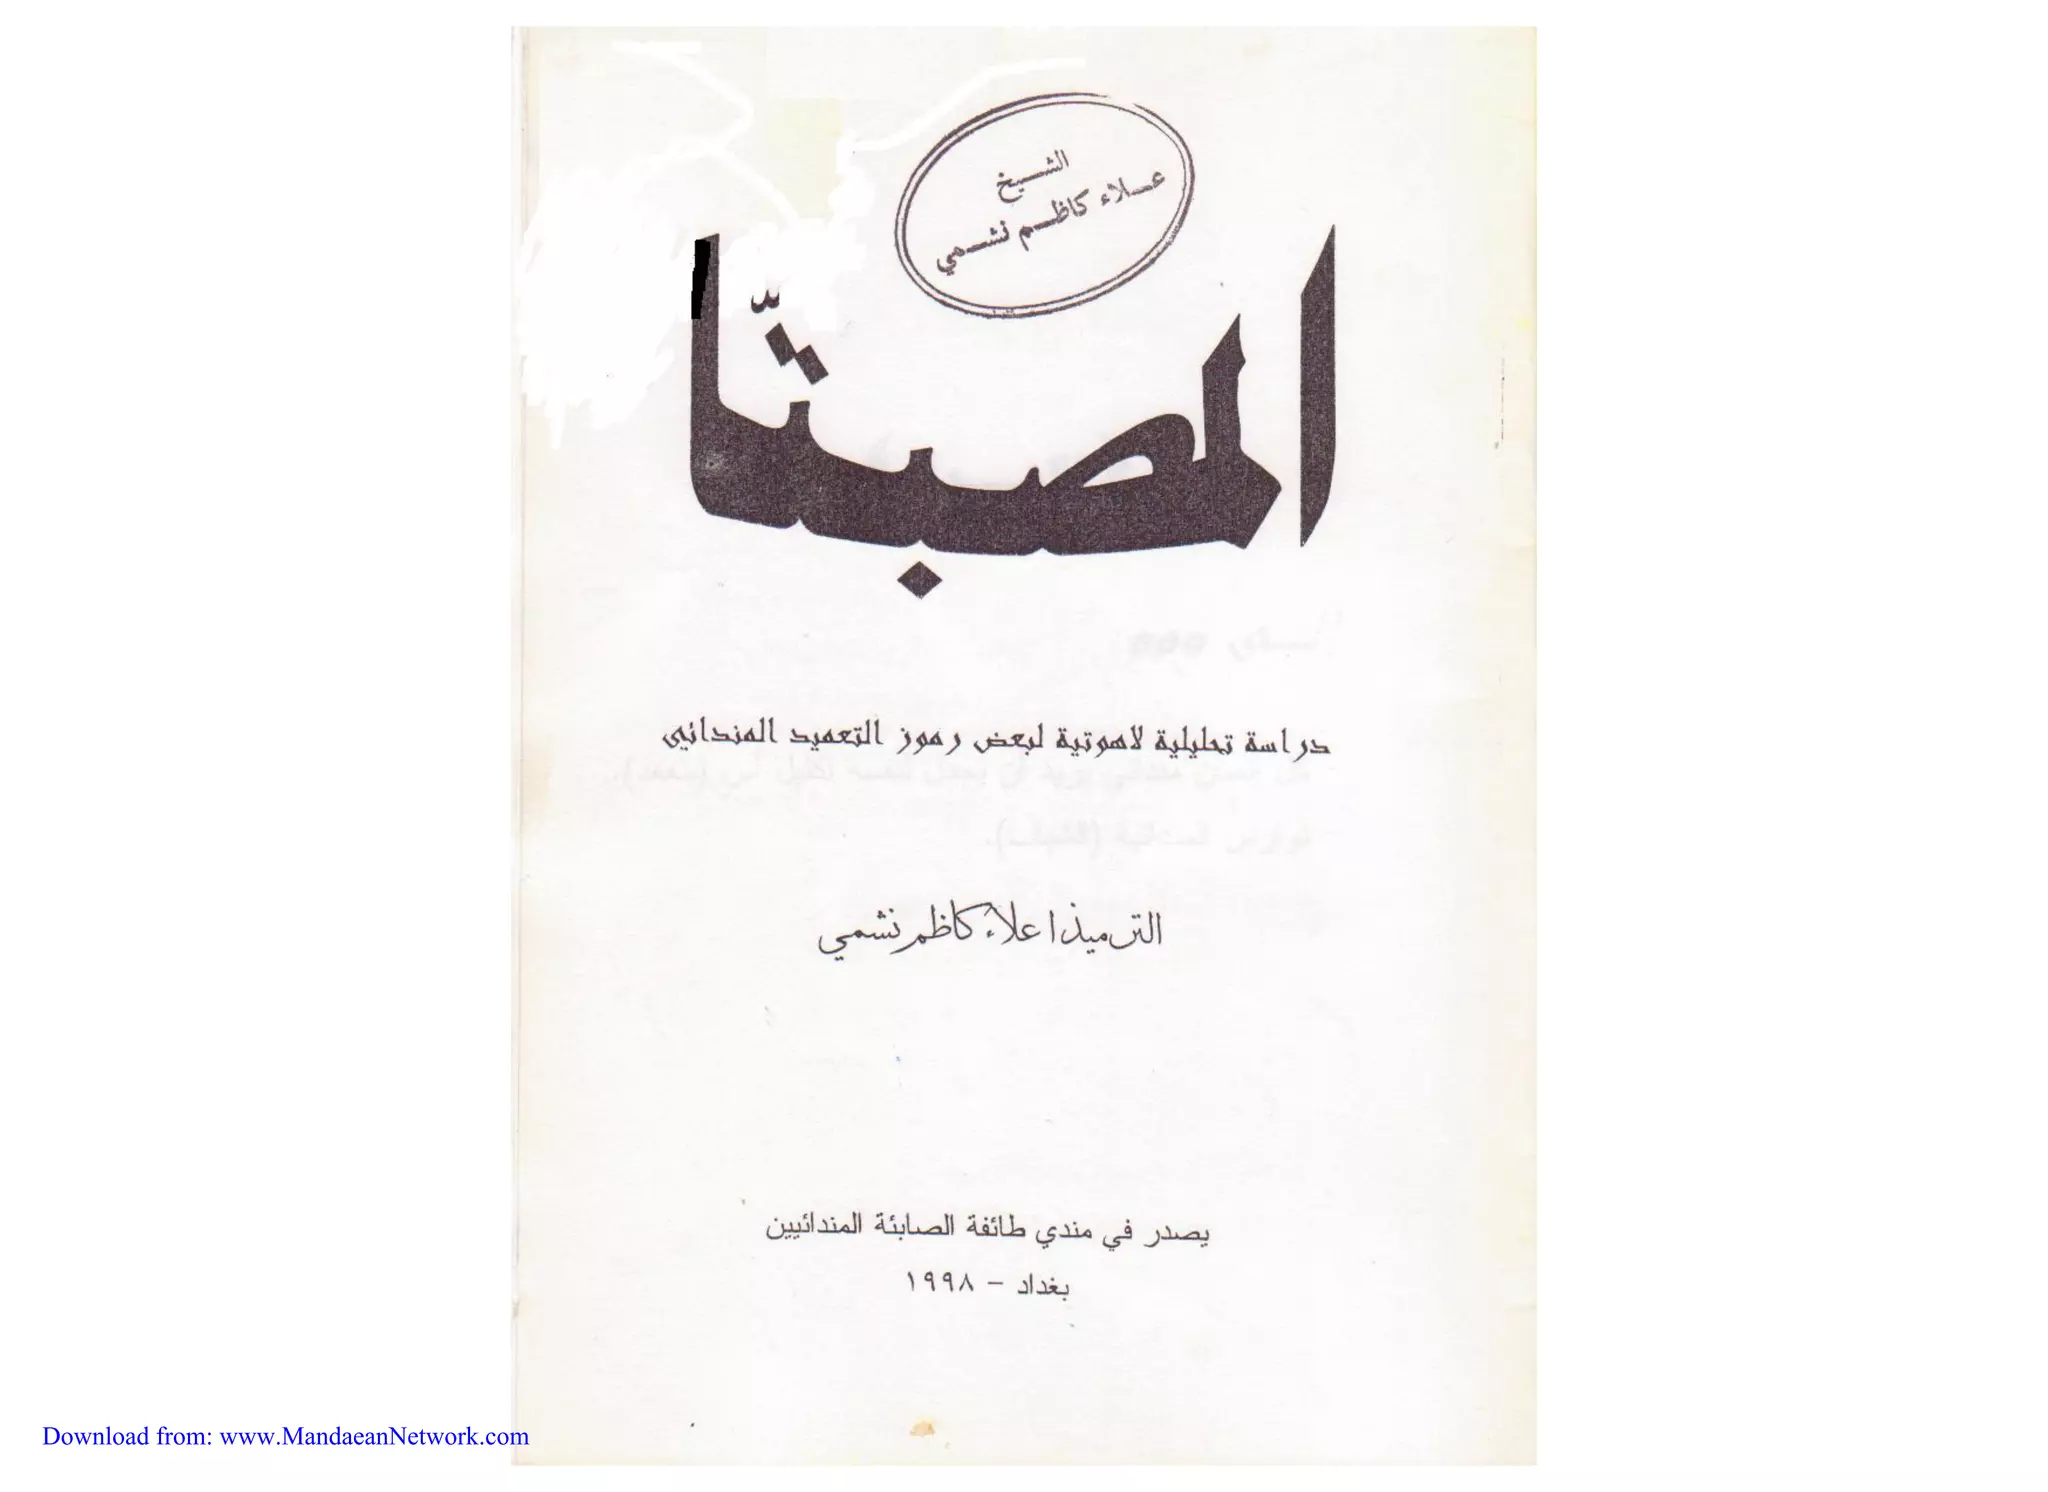 الشيخ
علاء كاظم نشمي
المصبتّا
دراسة تحليلية لاهوتية لبعض رموز التعميد المندائي
الترميذا علاء كاظم نشمي
يصدر في مندي طائفة الصابئة المندائيين
بغداد - ١٩٩٨
Download from: www.MandaeanNetwork.com